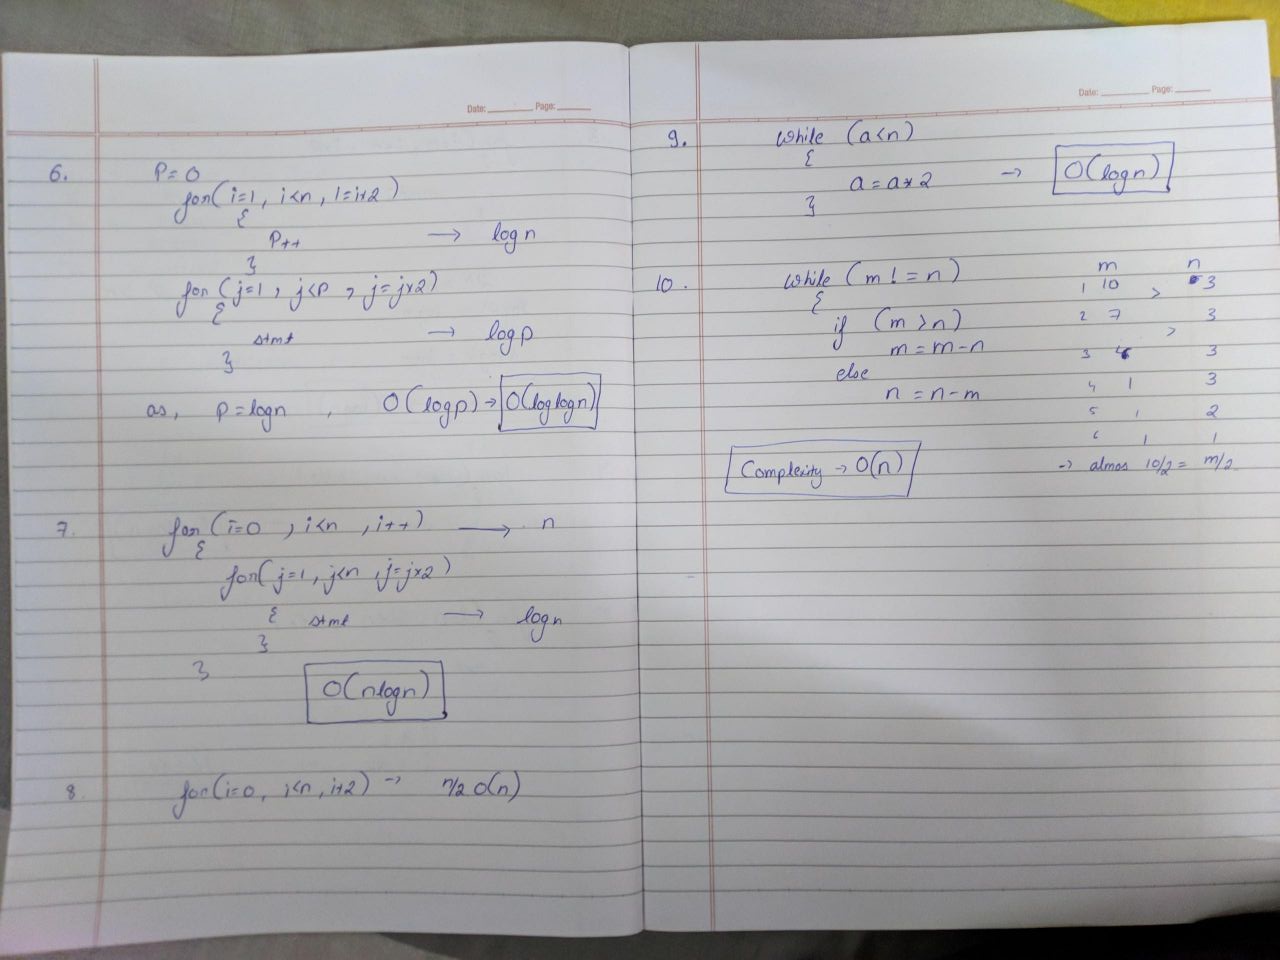 Date: Page:
6. P=0
for(i=1, i<n, i=i*2)
{
P++ → log n
}
for (j=1, j<P, j=j*2)
{
stmt → log p
}
as, P=logn, O(logp) → O(loglogn)
7. for(i=0, i<n, i++) → n
{
for(j=1, j<n, j=j*2)
{ stmt → logn
}
}
O(nlogn)
8. for(i=0, i<n, i+2) → n/2 O(n)
Date: Page:
9. while (a<n)
{
a = a*2 → O(logn)
}
10. while (m != n)
{
if (m>n)
m = m-n
else
n = n-m
Complexity → O(n)
m n
1 10 > 3
2 7 > 3
3 4 3
4 1 3
5 1 2
6 1 1
→ almos 10/2 = m/2